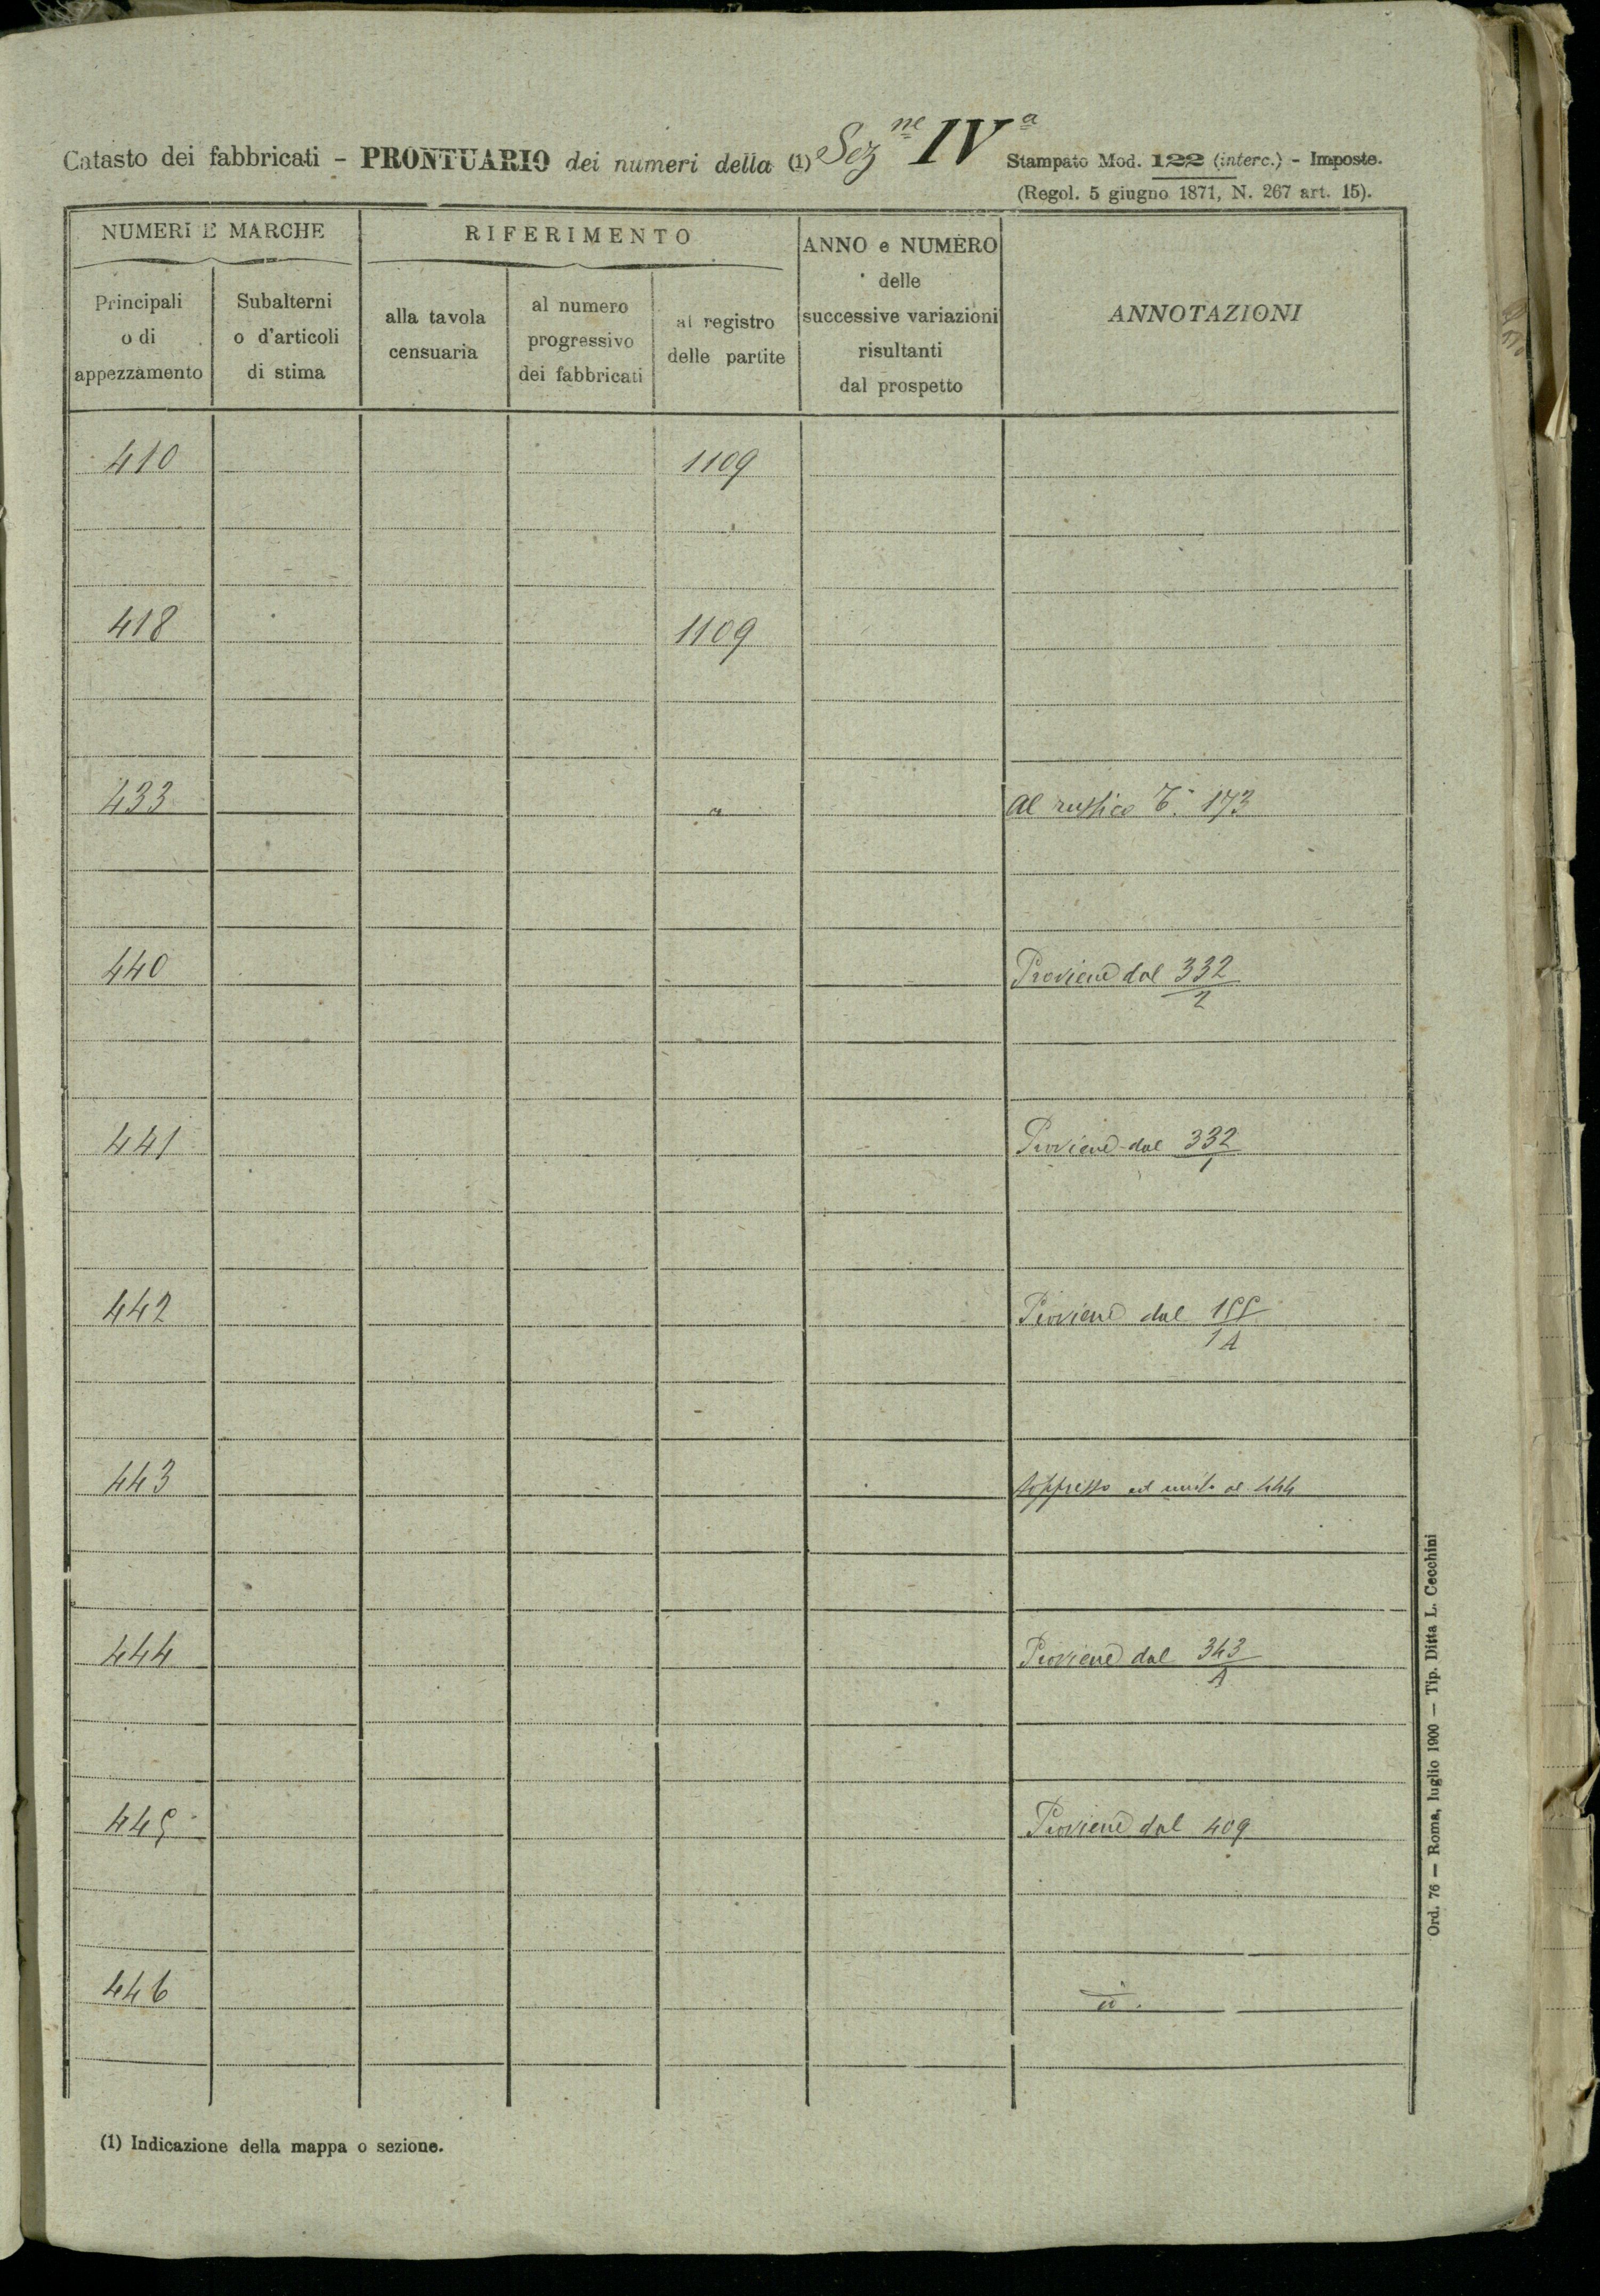 Catasto dei fabbricati - PRONTUARIO dei numeri della (1) Sez.ne IVa
Stampato Mod. 122 (interc.) - Imposte.
(Regol. 5 giugno 1871, N. 267 art. 15).
NUMERI E MARCHE
RIFERIMENTO
ANNO e NUMERO
delle
successive variazioni
risultanti
dal prospetto
ANNOTAZIONI
Principali
o di
appezzamento
Subalterni
o d'articoli
di stima
alla tavola
censuaria
al numero
progressivo
dei fabbricati
al registro
delle partite
410 1109
418 1109
433 " Al rustico 173
440 Proviene dal 332
2
441 Proviene dal 332
1
442 Proviene dal 155
1A
443 Soppresso ed unito al 444
444 Proviene dal 343
A
445 Proviene dal 409
446 id.
(1) Indicazione della mappa o sezione.
Ord. 76 — Roma, luglio 1900 — Tip. Ditta L. Cecchini